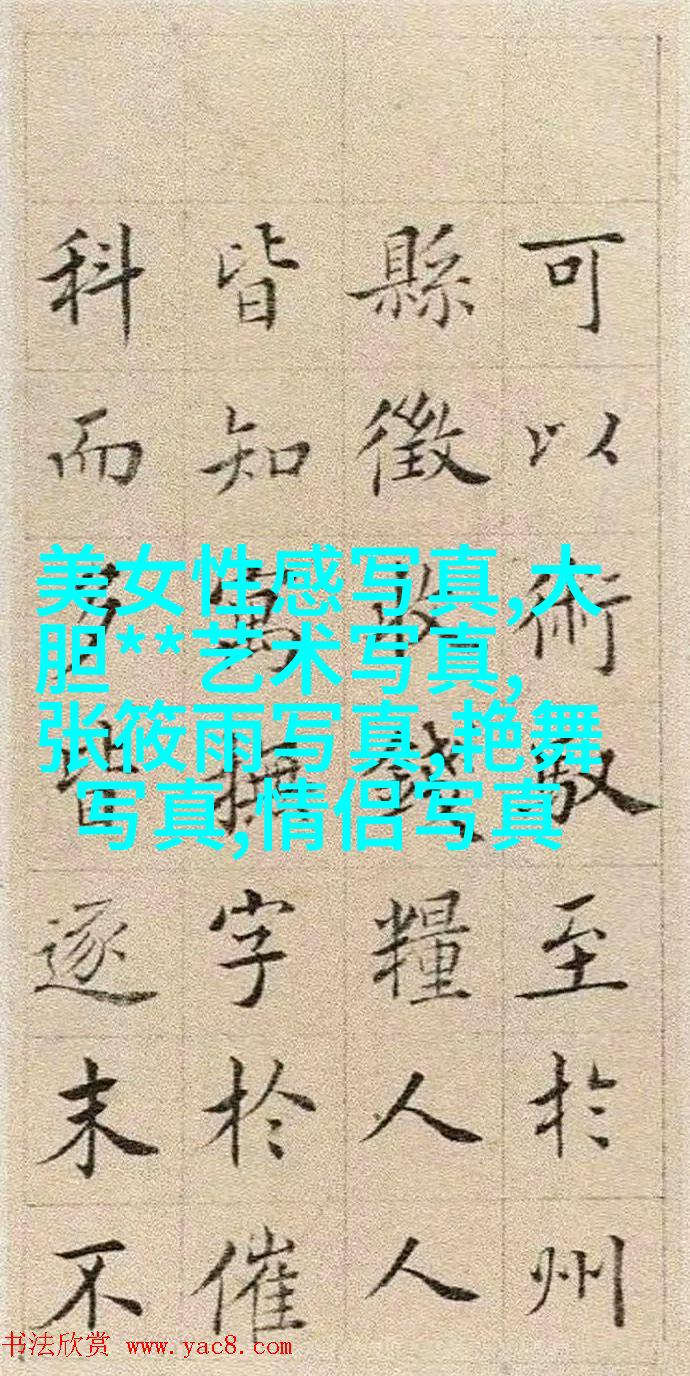 可以術馭至於州
縣徵收錢糧人人
皆知寓撫字於催
科而皆逐末不
美女性感写真,大
胆**艺术写真,
张筱雨写真,艳舞
写真,情侣写真
书法欣赏 www.yac8.com